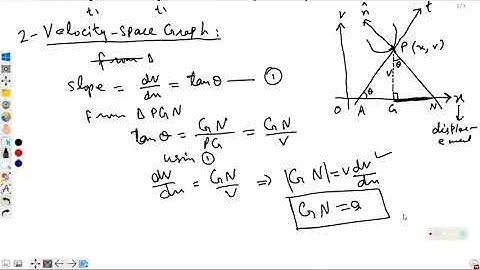 t₁ t₁
2 - Velocity-space Graph:
from Δ
slope = dv/dn = tanθ — ①
from Δ PGN
tanθ = GN/PG = GN/V
using ①
dv/dn = GN/V ⇒ |GN| = v dv/dn ✓
GN = a
v n̂ t
P (x, v)
θ
v
θ
O A G N x
displacement